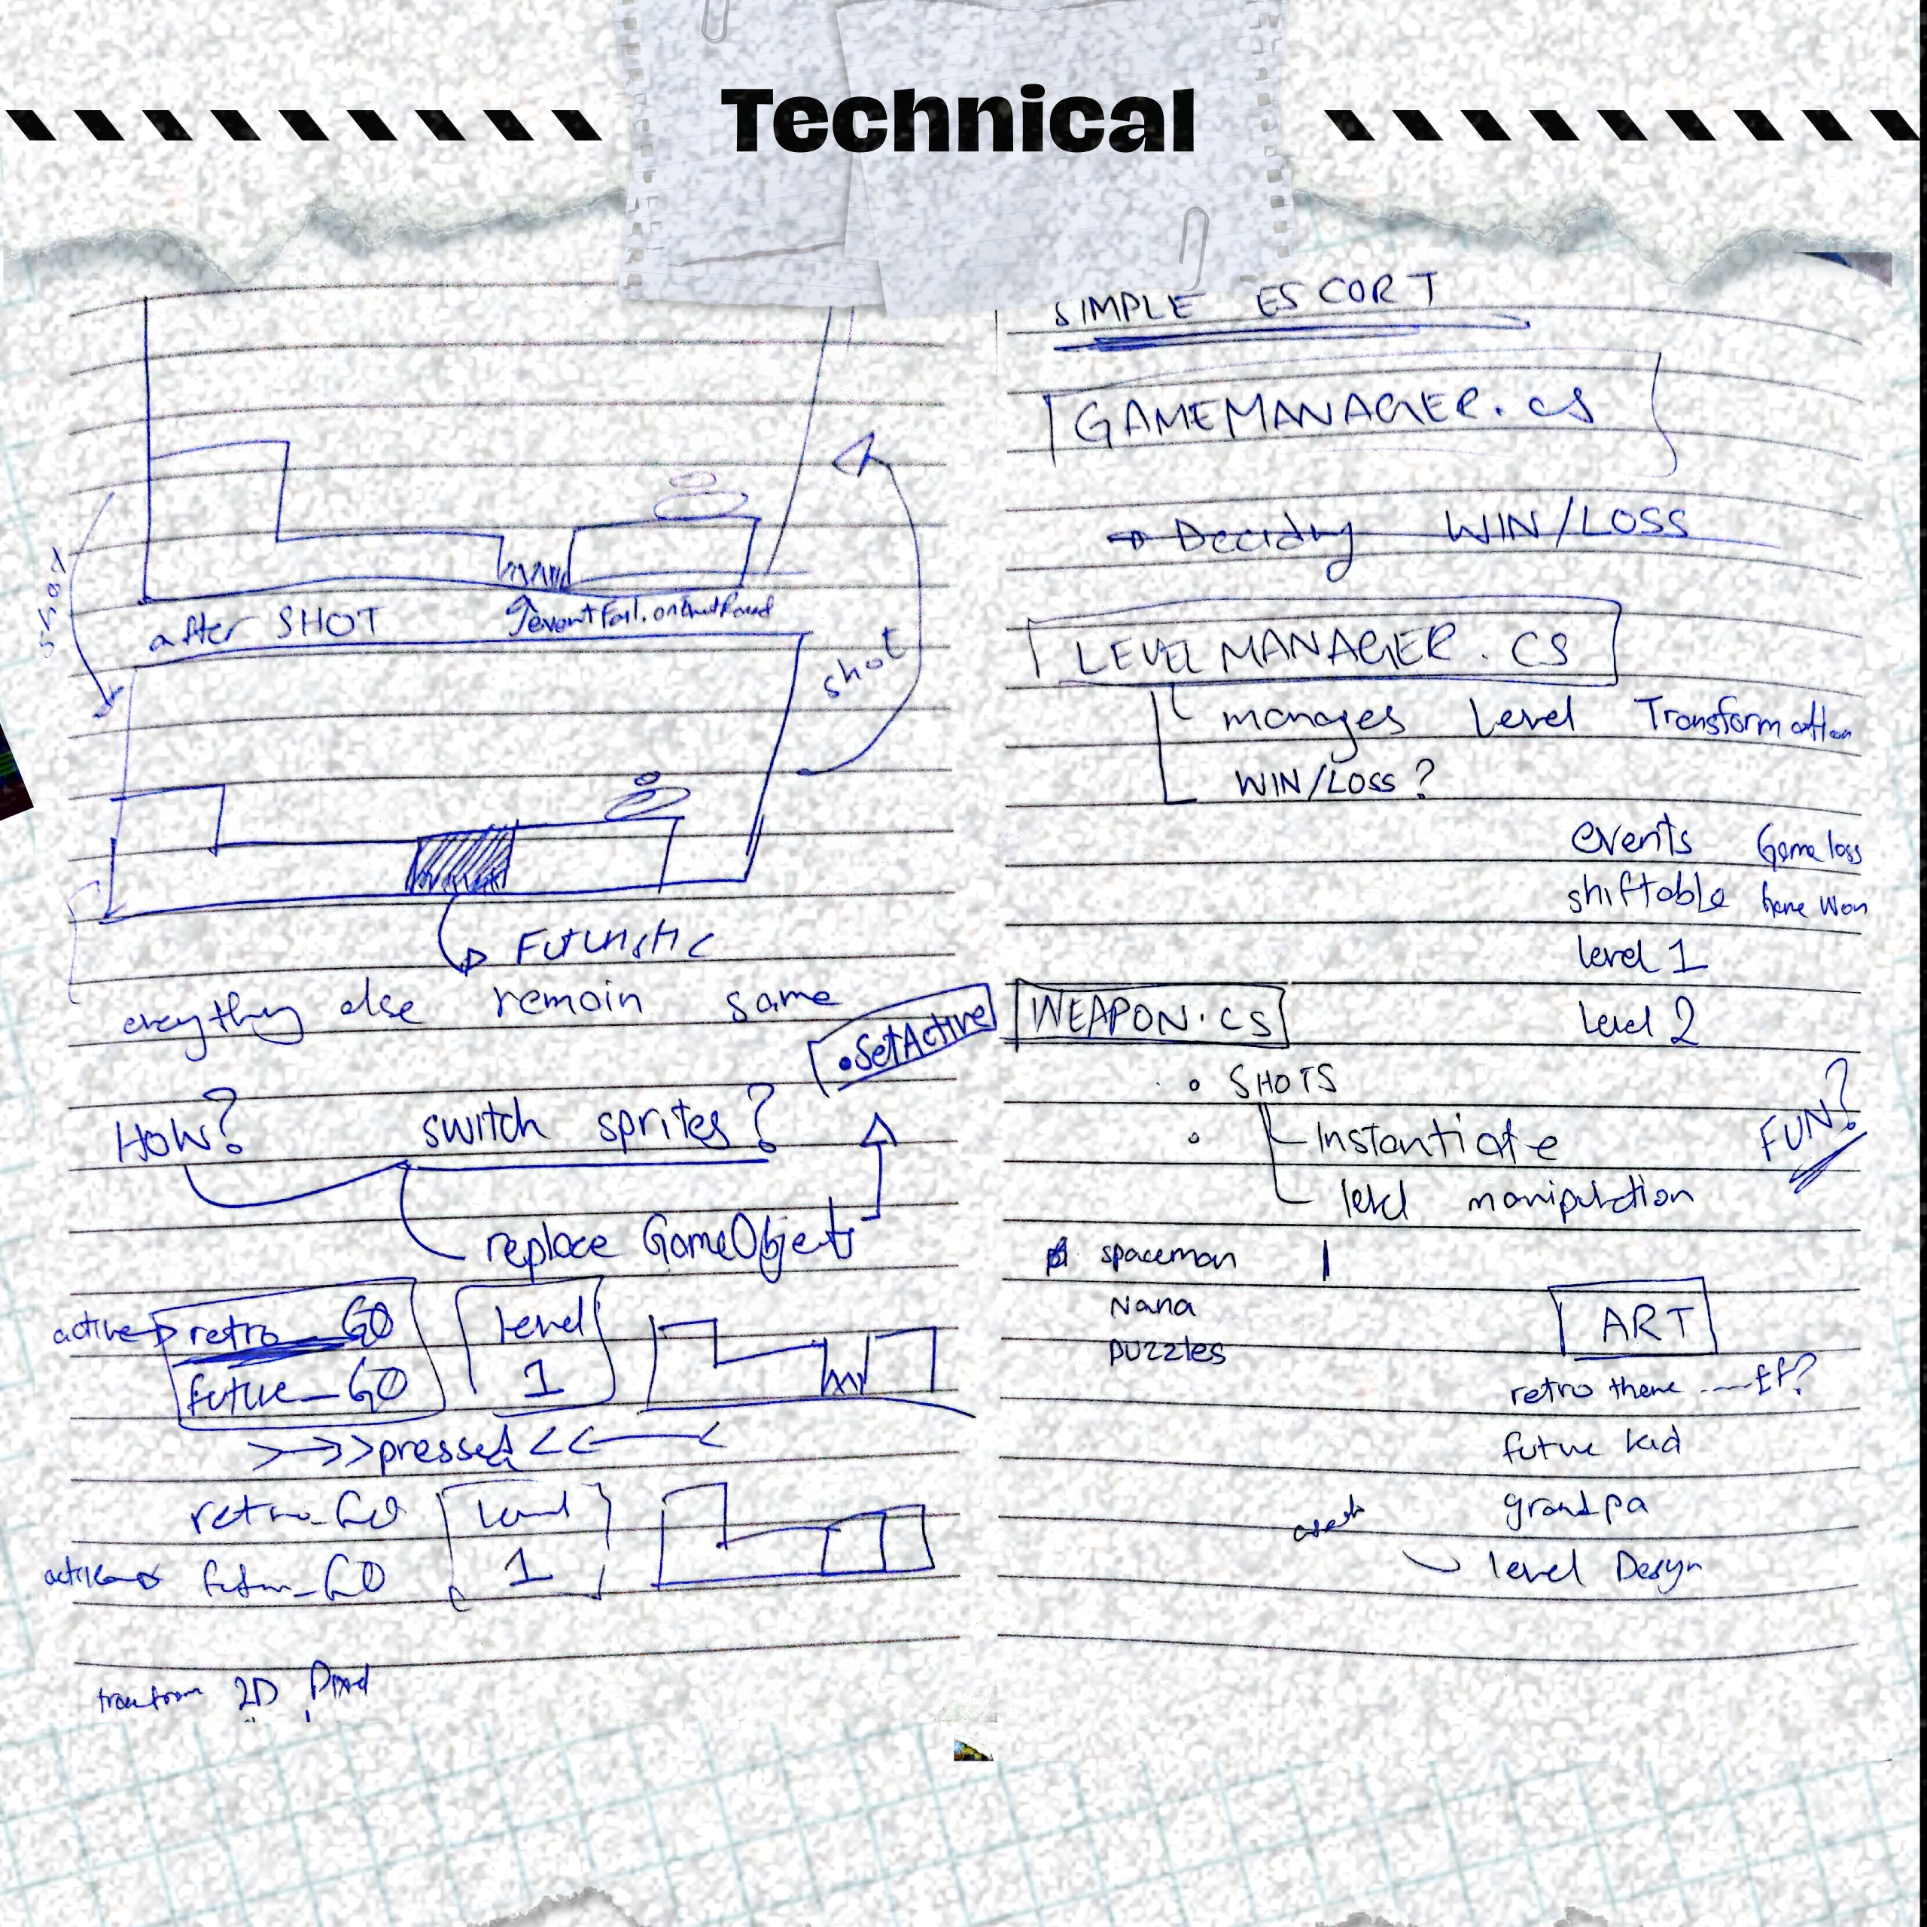 Technical
after SHOT
shot
shot
Futuristic
everything else remain same
.SetActive
How? switch sprites?
replace GameObject
active retro_GO level
future_GO 1
>>>pressed<<
retro_GO level
active future_GO 1
transform 2D Pixel
SIMPLE ESCORT
GAMEMANAGER.cs
Deciding WIN/LOSS
LEVELMANAGER.CS
manages level Transformation
WIN/LOSS?
events Game loss
shiftable Game Won
level 1
WEAPON.CS level 2
SHOTS
Instantiate FUN?
level manipulation
spaceman
Nana
PUZZles ART
retro theme
future kid
grandpa
level Design